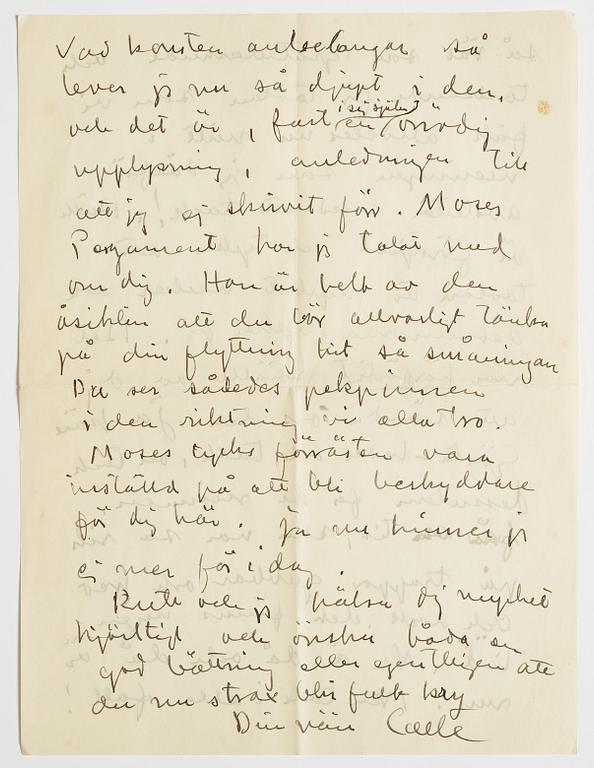 Vad konsten anbelangar så
lever jg nu så djupt i den,
och det är, fast en i sig själv ovärdig
upplysning, anledningen till
att jg ej skrivit förr. Moses
Pergament har jg talat med
om dig. Han är helt av den
åsikten att du bör allvarligt tänka
på din flyttning hit så småningom
Du ser således pekpinnen
i den riktning vi alla tro.
Moses tycks förresten vara
inställd på att bli beskyddare
för dig här. Ja nu hinner jg
ej mer för i dag.
Ruth och jg hälsa dig mycket
hjärtligt och önska båda en
god bättning eller egentligen att
du nu strax blir fullt kry
Din vän Calle